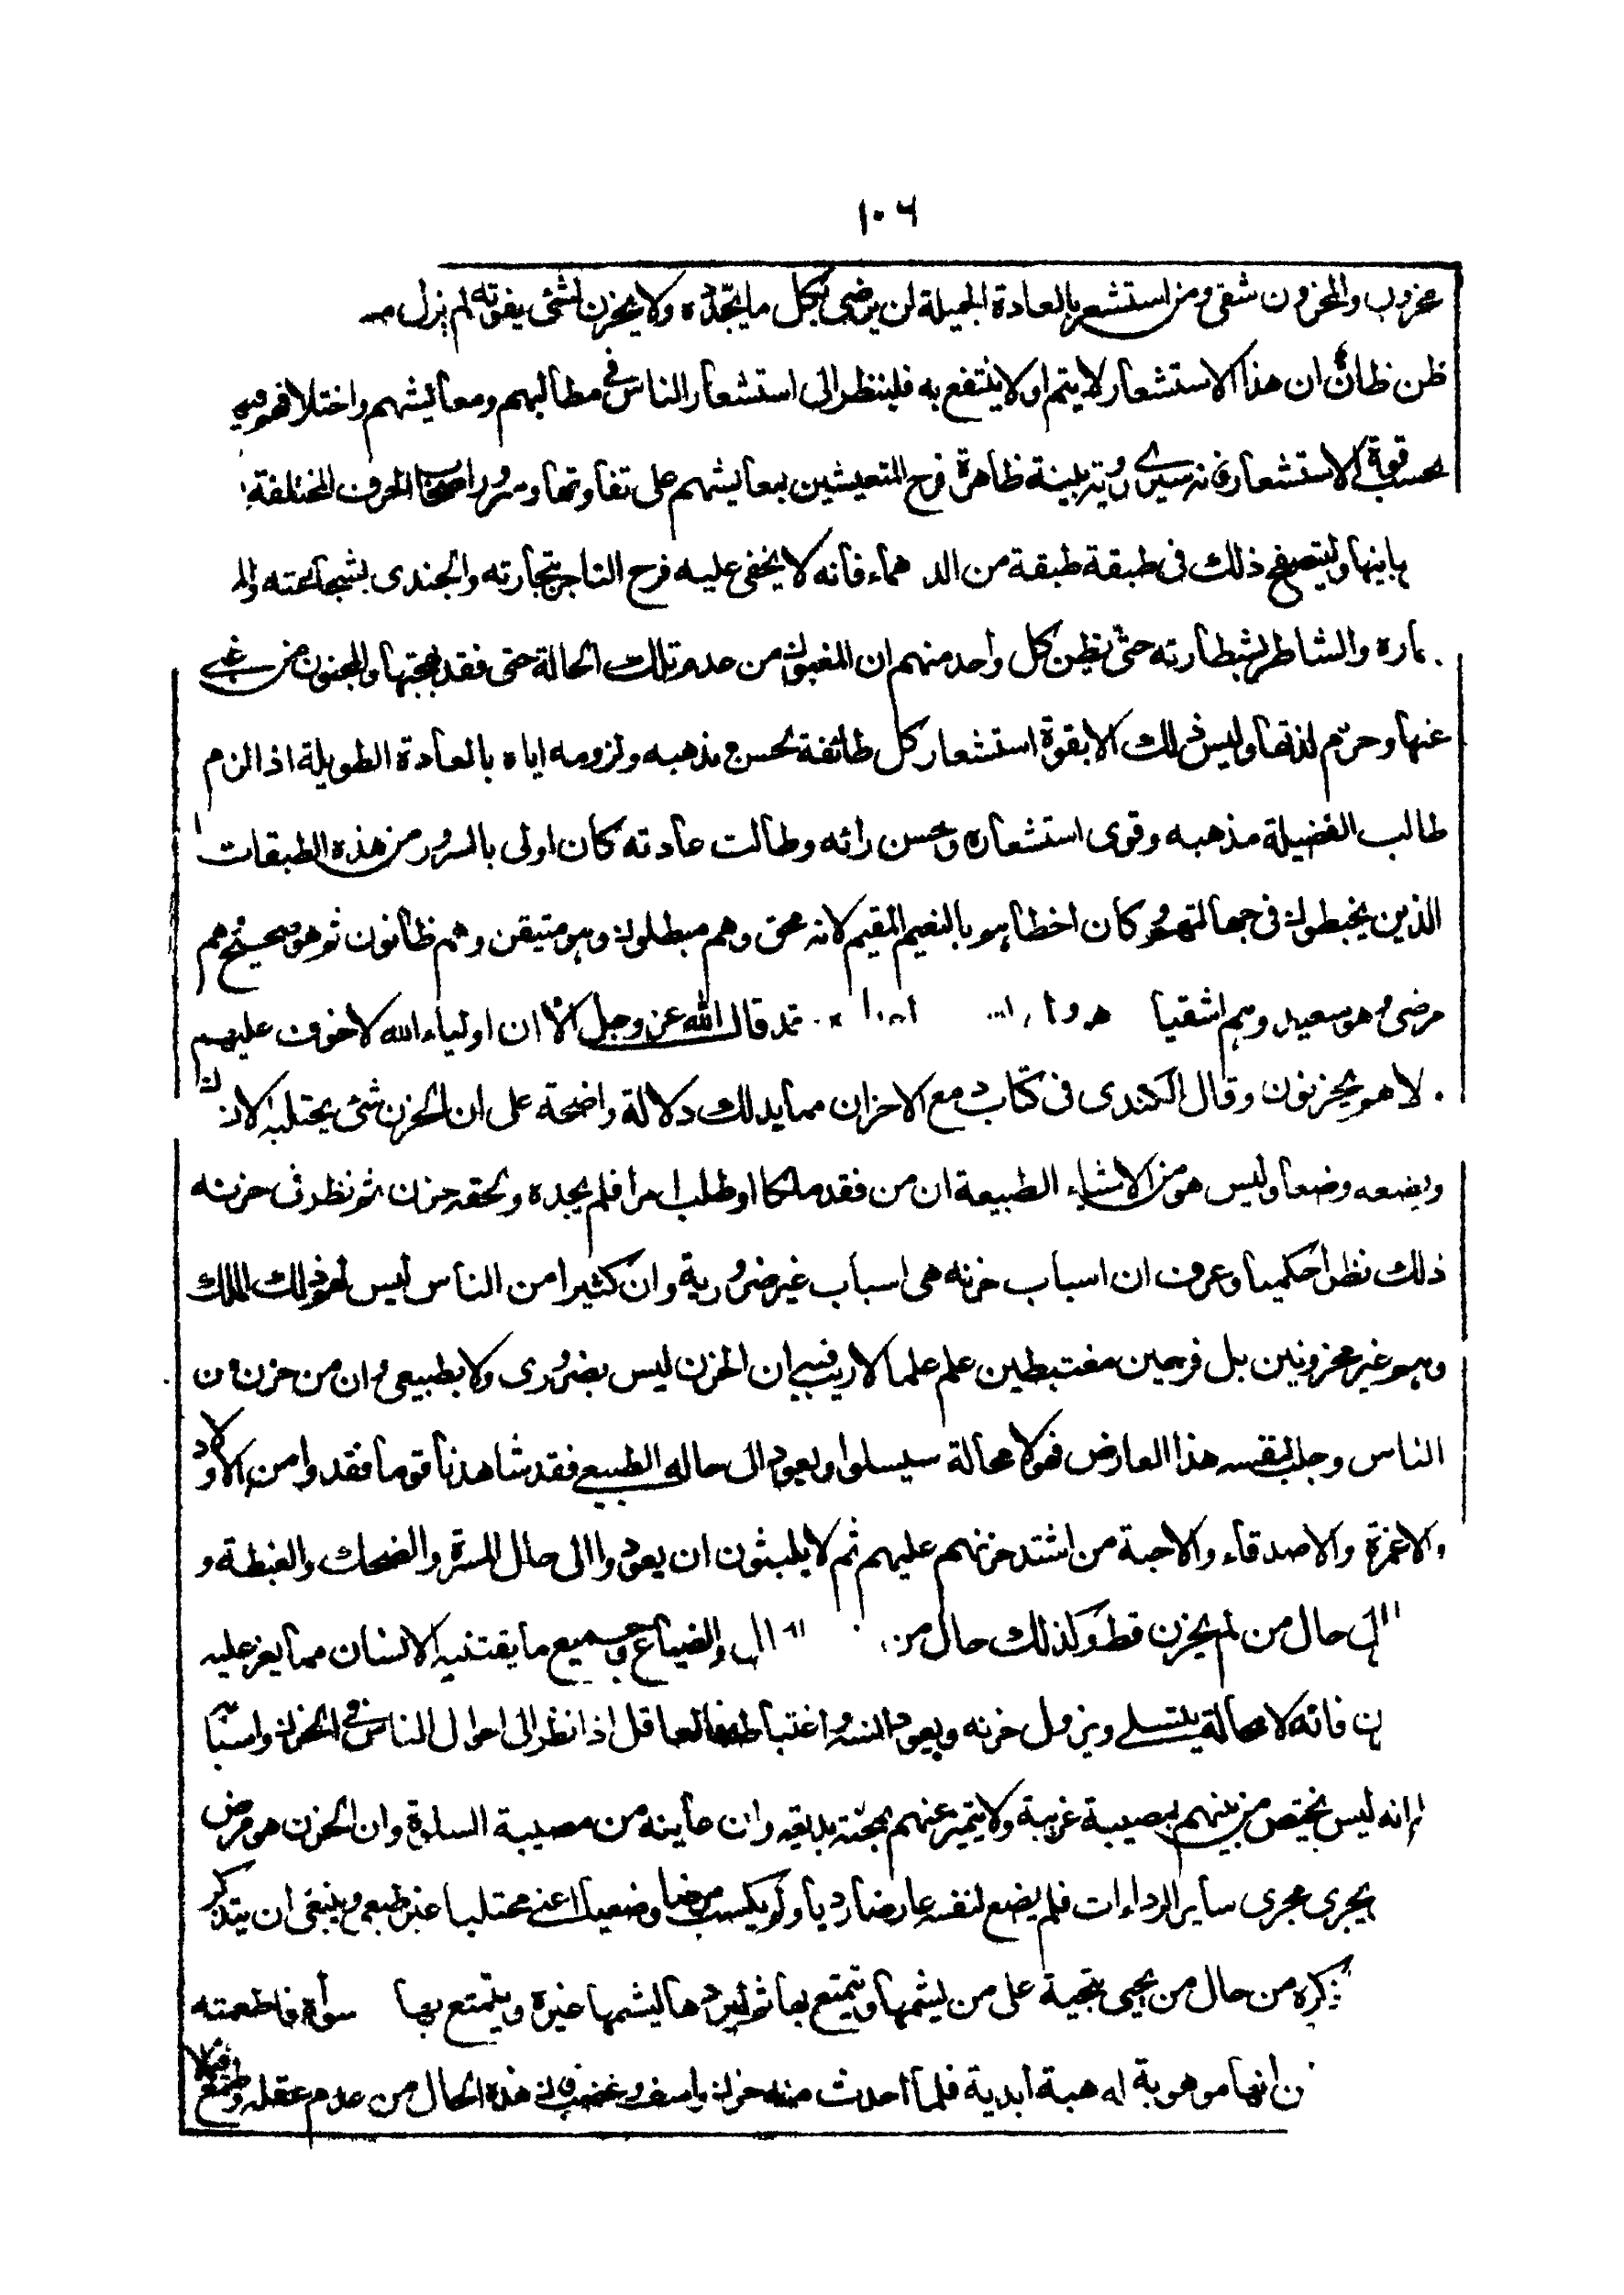 ١٠٦
محزون والمحزون شقى ومن استشعر بالعادة الجميلة لن يرضى بكل ما يتجدده ولا يحزن لشئ يفوته لم يزل
ظن ظان ان هذا الاستشعار لا يتم او لا ينتفع به فلينظر الى استشعار الناس فى مطالبهم ومعايشهم واختلافهم فيها
بحسب قوة الاستشعار فانه سيرى رؤية بينة ظاهرة فرح المتعيشين بمعايشهم على تفاوتها وسرور اصحاب الحرف المختلفة
باينها وليتصفح ذلك فى طبقة طبقة من الدهماء فانه لا يخفى عليه فرح التاجر بتجارته والجندى بشجاعته
والشاطر بشطارته حتى يظن كل واحد منهم ان المغبون من عدم تلك الحالة حتى فقد بهجتها والمجنون من غبى
عنها وحرم لذتها وليس ذلك الا بقوة استشعار كل طائفة بحسن مذهبه ولزومه اياه بالعادة الطويلة اذا لزم
طالب الفضيلة مذهبه وقوى استشعاره وحسن رائه وطالت عادته كان اولى بالسرور من هذه الطبقات
الذين يخبطون فى جهالتهم وكان اخطاهم بالنعيم المقيم لانه محق وهم مبطلون وهو متيقن وهم ظانون ثم هو صحيح وهم
مرضى وهو سعيد وهم اشقيا قد قال الله عز وجل الا ان اولياء الله لا خوف عليهم
لا هم يحزنون وقال الكندى فى كتاب دفع الاحزان مما يدلك دلالة واضحة على ان الحزن شئ يجتلبه الانسان
ويضعه وضعا وليس هو من الاشياء الطبيعة ان من فقد ملكا او طلب امرا فلم يجده ولحقه حزن ثم نظر فى حزنه
ذلك نظرا حكميا وعرف ان اسباب حزنه هى اسباب غير ضرورية وان كثيرا من الناس ليس لهم ذلك الملك
وهم غير محزونين بل فرحين مغتبطين علم علما لا ريب فيه ان الحزن ليس بضرورى ولا بطبيعى وان من حزن من
الناس وجلب لنفسه هذا العارض فهو لا محالة سيسلوا ويعود الى حاله الطبيعى فقد شاهدنا قوما فقدوا من الاولاد
والاعزة والاصدقاء والاحبة من اشتد حزنهم عليهم ثم لا يلبثون ان يعودوا الى حال المسرة والضحك والغبطة و
الى حال من لم يحزن قط وكذلك حال من والضياع وجميع ما يقتنيه الانسان مما يعز عليه
فانه لا محالة يتسلى ويزول حزنه ويعود انسه واغتباطه فالعاقل اذا نظر الى احوال الناس فى الحزن واسبابه
انه ليس يختص من بينهم بمصيبة غريبة ولا يتميز عنهم بمحنة بديعة وان غاينه من مصيبة السلوة وان الحزن هو مرض
يجرى مجرى ساير الرداءات فلم يضع لنفسه عارضا رديا ولم يكسب مرضا وضعيا اعنى مجتلبا غير طبيعى وينبغى ان يتذكر
ذكره من حال من يحيى بتحية على من يشمها ويتمتع بها ثم ليردها ليشمها غيره ويتمتع بها سواه فاطعمته
انها موهوبة له هبة ابدية فلما احدث منه حزن واسف وغضب فان هذه الحال من عدم عقله وطمع